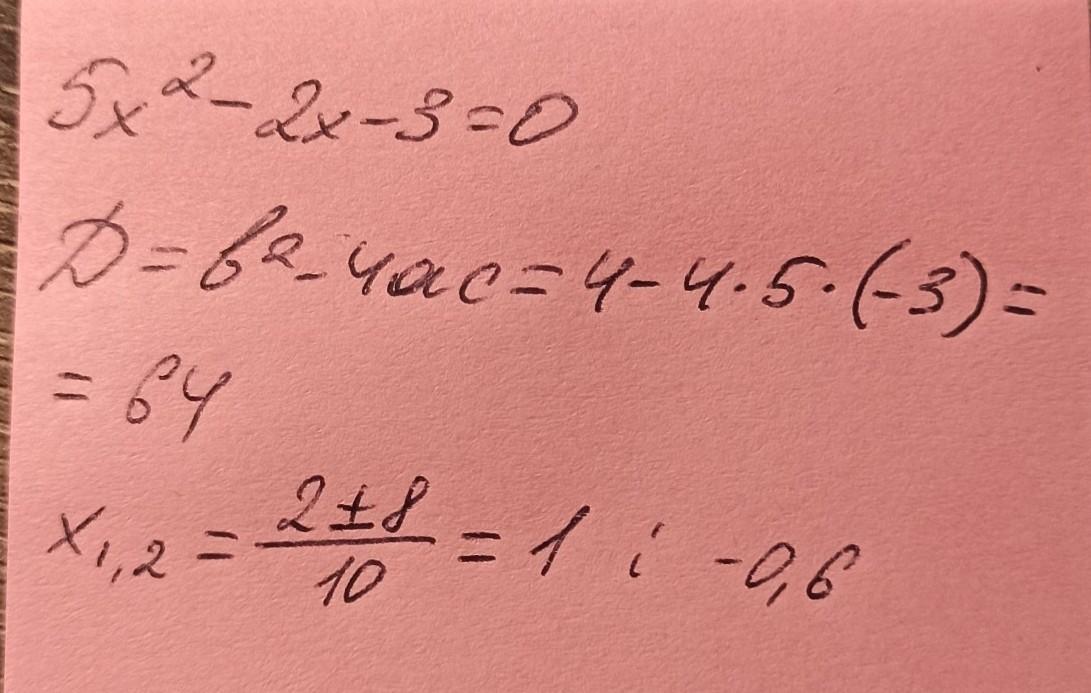 5x² - 2x - 3 = 0
D = b² - 4ac = 4 - 4·5·(-3) =
= 64
x₁,₂ = (2 ± 8)/10 = 1 i -0,6